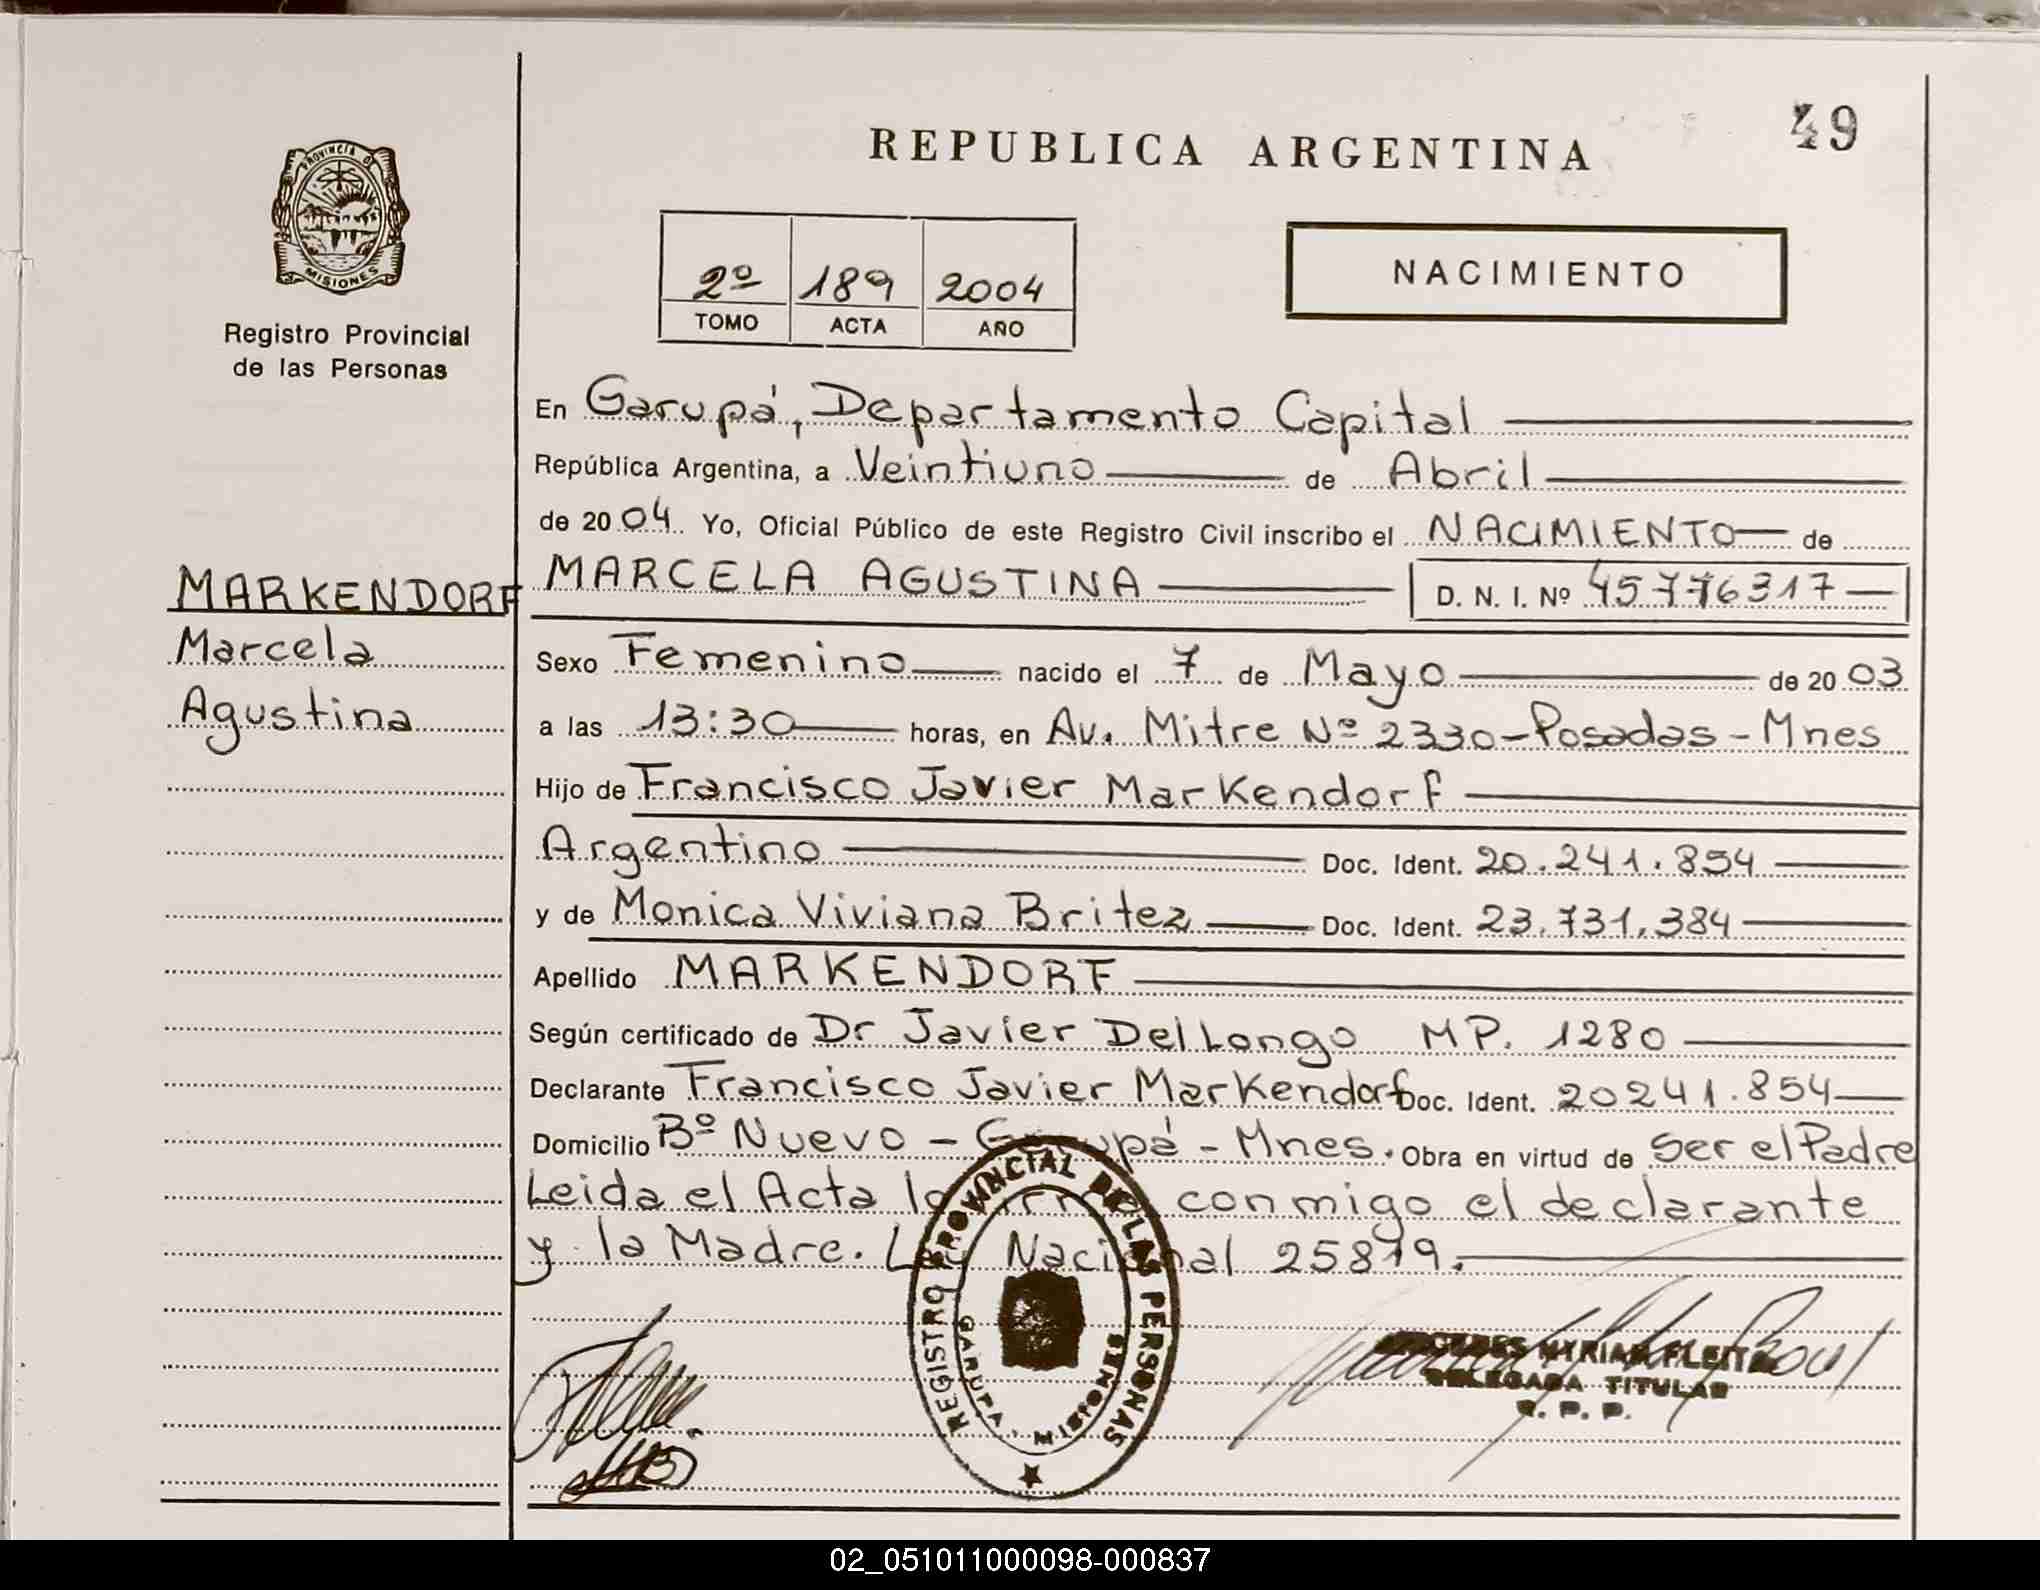 49
REPUBLICA ARGENTINA
PROVINCIA D
MISIONES
Registro Provincial
de las Personas
2º 189 2004
TOMO ACTA AÑO
NACIMIENTO
En Garupá, Departamento Capital
República Argentina, a Veintiuno de Abril
de 2004 Yo, Oficial Público de este Registro Civil inscribo el NACIMIENTO de
MARKENDORF
Marcela
Agustina
MARCELA AGUSTINA D. N. I. Nº 45776317
Sexo Femenino nacido el 7 de Mayo de 2003
a las 13:30 horas, en Av. Mitre Nº 2330-Posadas-Mnes
Hijo de Francisco Javier Markendorf
Argentino Doc. Ident. 20.241.854
y de Monica Viviana Britez Doc. Ident. 23.731.384
Apellido MARKENDORF
Según certificado de Dr Javier DelLongo MP. 1280
Declarante Francisco Javier Markendorf Doc. Ident. 20241.854
Domicilio Bº Nuevo - Garupá - Mnes. Obra en virtud de Ser el Padre
Leida el Acta la conmigo el declarante
y la Madre. Ley Nacional 25819.
REGISTRO PROVINCIAL DE LAS PERSONAS
GARUPA MISIONES
MYRIAM FLEITA
DELEGADA TITULAR
R. P. P.
02_051011000098-000837